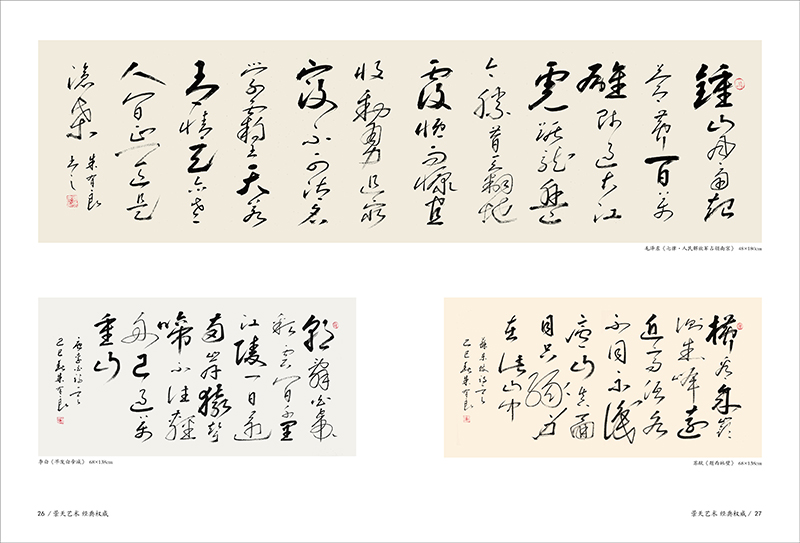 鍾山風雨起
蒼黃百萬
雄師過大江
虎踞龍盤
今勝昔天翻地
覆慨而慷宜
將剩勇追窮
寇不可沽名
學霸王天若
有情天亦老
人間正道是
滄桑
朱有良
毛泽东《七律·人民解放军占领南京》
朝辭白帝
彩雲間千里
江陵一日還
兩岸猿聲
啼不住輕
舟已過萬
重山
唐李白詩
朱有良
李白《早发白帝城》 68×138cm
橫看成嶺
側成峰遠
近高低各
不同不識
廬山真面
目只緣身
在此山中
蘇東坡詩
朱有良
苏轼《题西林壁》 68×138cm
26 / 景天艺术 经典权威
景天艺术 经典权威 / 27